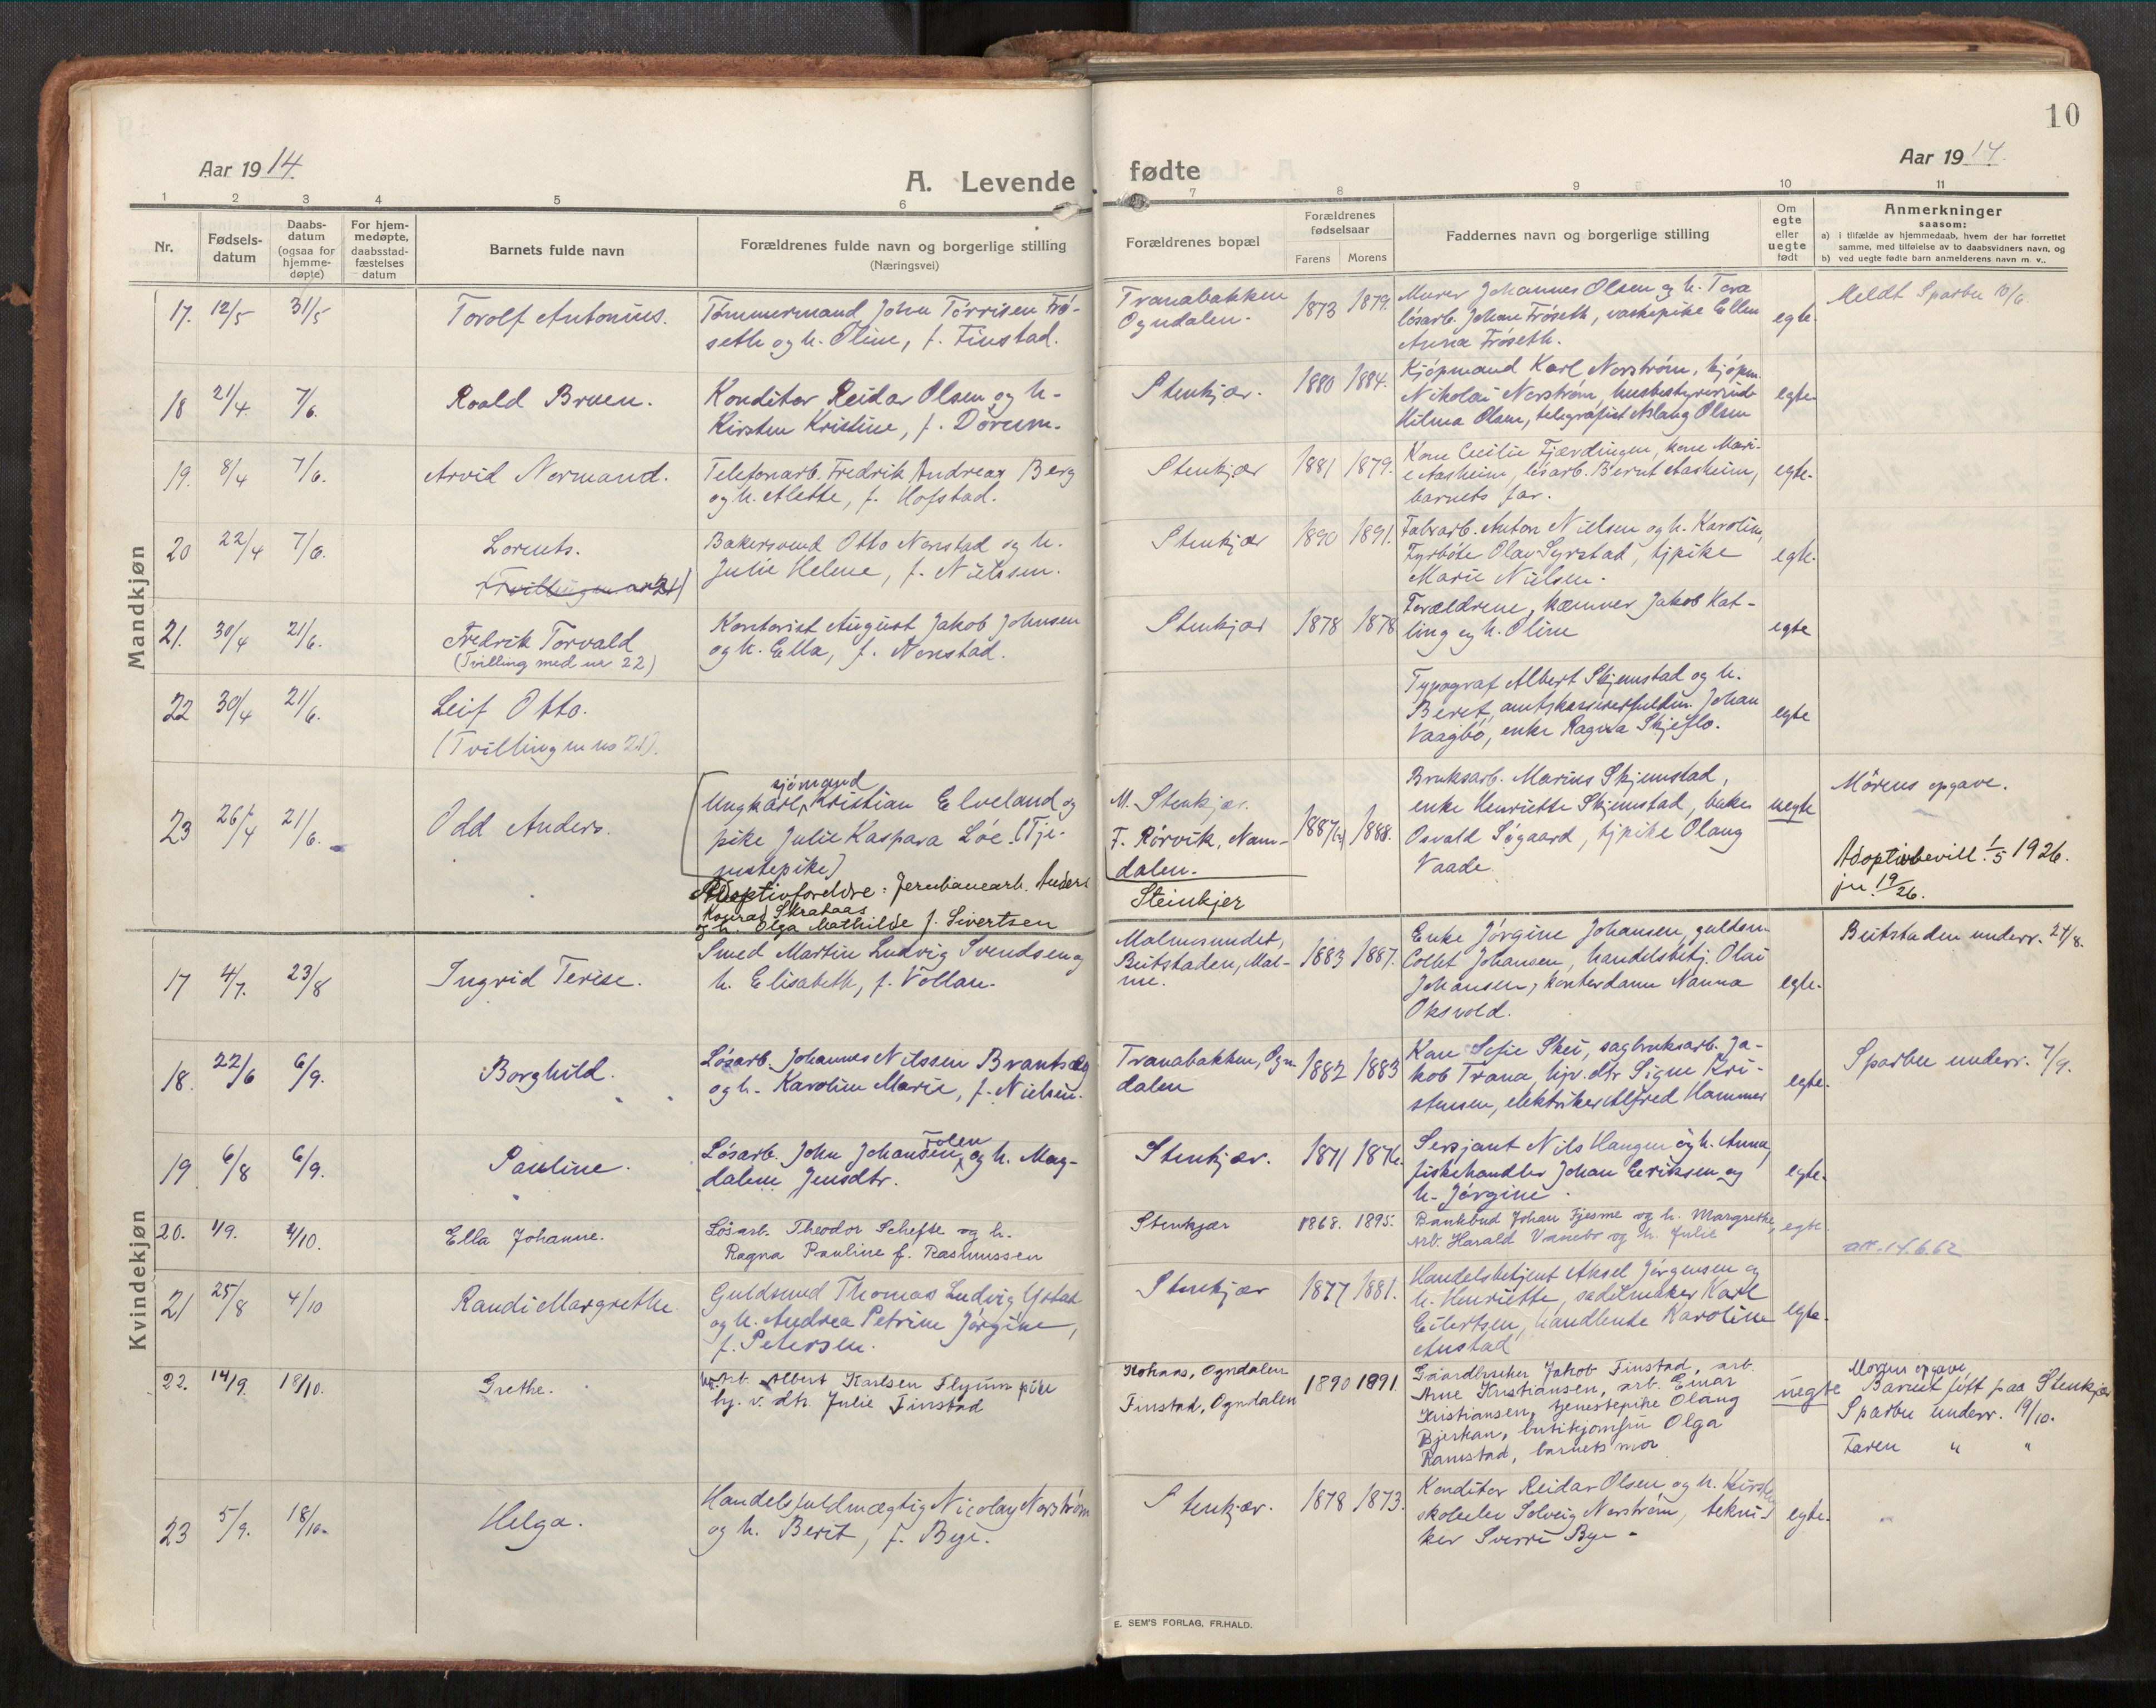 10
Aar 1914
A. Levende fødte
Aar 1914.
1 2 3 4 5 6 7 8 9 10 11
Nr.
Fødsels-
datum
Daabs-
datum
(ogsaa for
hjemme-
døpte)
For hjem-
medøpte,
daabsstad-
fæstelses
datum
Barnets fulde navn
Forældrenes fulde navn og borgerlige stilling
(Næringsvei)
Forældrenes bopæl
Forældrenes
fødselsaar
Farens Morens
Faddernes navn og borgerlige stilling
Om
egte
eller
uegte
født
Anmerkninger
saasom:
a) i tilfælde av hjemmedaab, hvem der har forrettet
samme, med tilføielse av to daabsvidners navn, og
b) ved uegte fødte barn anmelderens navn m. v..
Mandkjøn
17. 12/5 31/5
Torolf Antonius.
Tømmermand John Tørrisen Frø-
seth og h. Oline, f. Finstad.
Tranabakken
Ogndalen.
1873 1879.
Murer Johannes Olsen og h. Tora
løsarb. Johan Frøseth, vaskepike Ellen
Anna Frøseth.
egte.
Meldt Sparbu 10/6.
18 21/4 7/6.
Roald Bruen.
Konditor Reidar Olsen og h.
Kirsten Kristine, f. Dørum.
Stenkjær.
1880 1884.
Kjøpmand Karl Norstrøm, kjøpm.
Nikolai Norstrøm, husbestyrerinde
Hilma Olsen, telegrafist Aslaug Olsen
egte
19. 8/4 7/6.
Arvid Normand.
Telefonarb. Fredrik Andreas Berg
og h. Alette, f. Hofstad.
Stenkjær
1881 1879.
Kone Cecilie Fjærdingen, kone Mari-
e Aasheim, løsarb. Bernt Aasheim,
barnets far.
egte.
20 22/4 7/6.
Lorents.
Bakersvend Otto Nonstad og h.
Julie Helene, f. Nielsen.
Stenkjær
1890 1891.
Fabrarb. Anton Nielsen og h. Karoline,
Fyrbøte Olav Syrstad, tjpike
Marie Nielsen.
egte.
21. 30/4 21/6.
Fredrik Torvald
(Tvilling med nr 22)
Kontorist August Jakob Johnsen
og h. Ella, f. Nonstad.
Stenkjær
1878 1878
Forældrene, kæmner Jakob Kat-
ling og h. Oline
egte
22 30/4 21/6.
Leif Otto.
(Tvilling m no 21).
Typograf Albert Skjemstad og h.
Beret, amtskassererfuldm. Johan
Vaagbø, enke Ragna Skjeflo.
egte
23 26/4 21/6.
Odd Anders.
sjømand
Ungkarl, Kristian Elveland og
pike Julie Kaspara Løe. (Tje-
nestepike)
Adoptivforeldre: Jernbanearb. Anders
Konrad Skrataas
og h. Olga Mathilde f. Sivertsen
M. Stenkjær.
F. Rørvik, Nam-
dalen.
Steinkjer
1887 1888.
Bruksarb. Marius Skjemstad,
enke Henriette Skjemstad, baker
Osvald Søgaard, tjpike Olaug
Vaade
uegte
Mörens opgave.
Adoptivbevill. 1/5 1926.
jnr. 19/26.
Kvindekjøn
17 4/7. 23/8
Ingrid Terese.
Smed Martin Ludvig Svendsen og
h. Elisabeth, f. Vollan.
Malmsundet,
Beitstaden, Mal-
me.
1883 1887.
Enke Jørgine Johansen, guldsm.
Collet Johansen, handelsbetj. Olai
Johansen, kontordame Nanna
Oksvold.
egte.
Beitstaden underr. 24/8.
18. 22/6 6/9.
Borghild.
Løsarb. Johannes Nilssen Brantsæg
og h. Karoline Marie, f. Nielsen.
Tranabakken, Ogn-
dalen
1882 1883
Kone Sofie Skei, sagbruksarb. Ja-
kob Trana, hjv. dtr Signe Kri-
stensen, elektriker Alfred Hammer
egte.
Sparbu underr. 7/9.
19 6/8 6/9.
Pauline.
Tolen
Løsarb. John Johansen, og h. Mag-
dalene Jensdtr.
Stenkjær.
1871 1876.
Sersjant Nils Haugen og h. Anna,
fiskehandler Johan Eriksen og
h. Jørgine.
egte.
20. 1/9. 4/10.
Ella Johanne.
Løsarb. Theodor Schefte og h.
Ragna Pauline f. Rasmussen
Stenkjær
1868. 1895.
Bankbud Johan Fjesme og h. Margrethe,
Arb. Harald Vambo og h. Julie
egte.
att. 14.6.62
21 25/8 4/10
Randi Margrethe
Guldsmed Thomas Ludvig Ystad
og h. Andrea Petrine Jørgine,
f. Petersen.
Stenkjær
1877 1881.
Handelsbetjent Aksel Jørgensen og
h. Henriette, sadelmaker Karl
Eilertsen, handlende Karoline
Anstad
egte.
22. 14/9. 18/10.
Grethe.
Arb. Albert Karlsen Flyum pike
hj. v. dtr. Julie Finstad
Ogndalen
Finstad, Ogndalen
1890 1891
Gaardbruker Jakob Finstad, arb.
Arne Kristiansen, arb. Einar
Kristiansen, tjenestepike Olaug
Bjerkan, butikjomfru Olga
Ramstad, barnets mor
uegte
Morens opgave
Barnet født paa Stenkjær
Sparbu underr. 19/10.
Faren " "
23 5/9. 18/10.
Helga.
Handelsfuldmægtig Nicolay Norstrøm
og h. Berit, f. Bye.
Stenkjær.
1878 1873.
Konditor Reidar Olsen og h. Kirsten,
skolelev Solveig Norstrøm, tekni-
ker Sverre Bye
egte.
E. SEM'S FORLAG, FR.HALD.